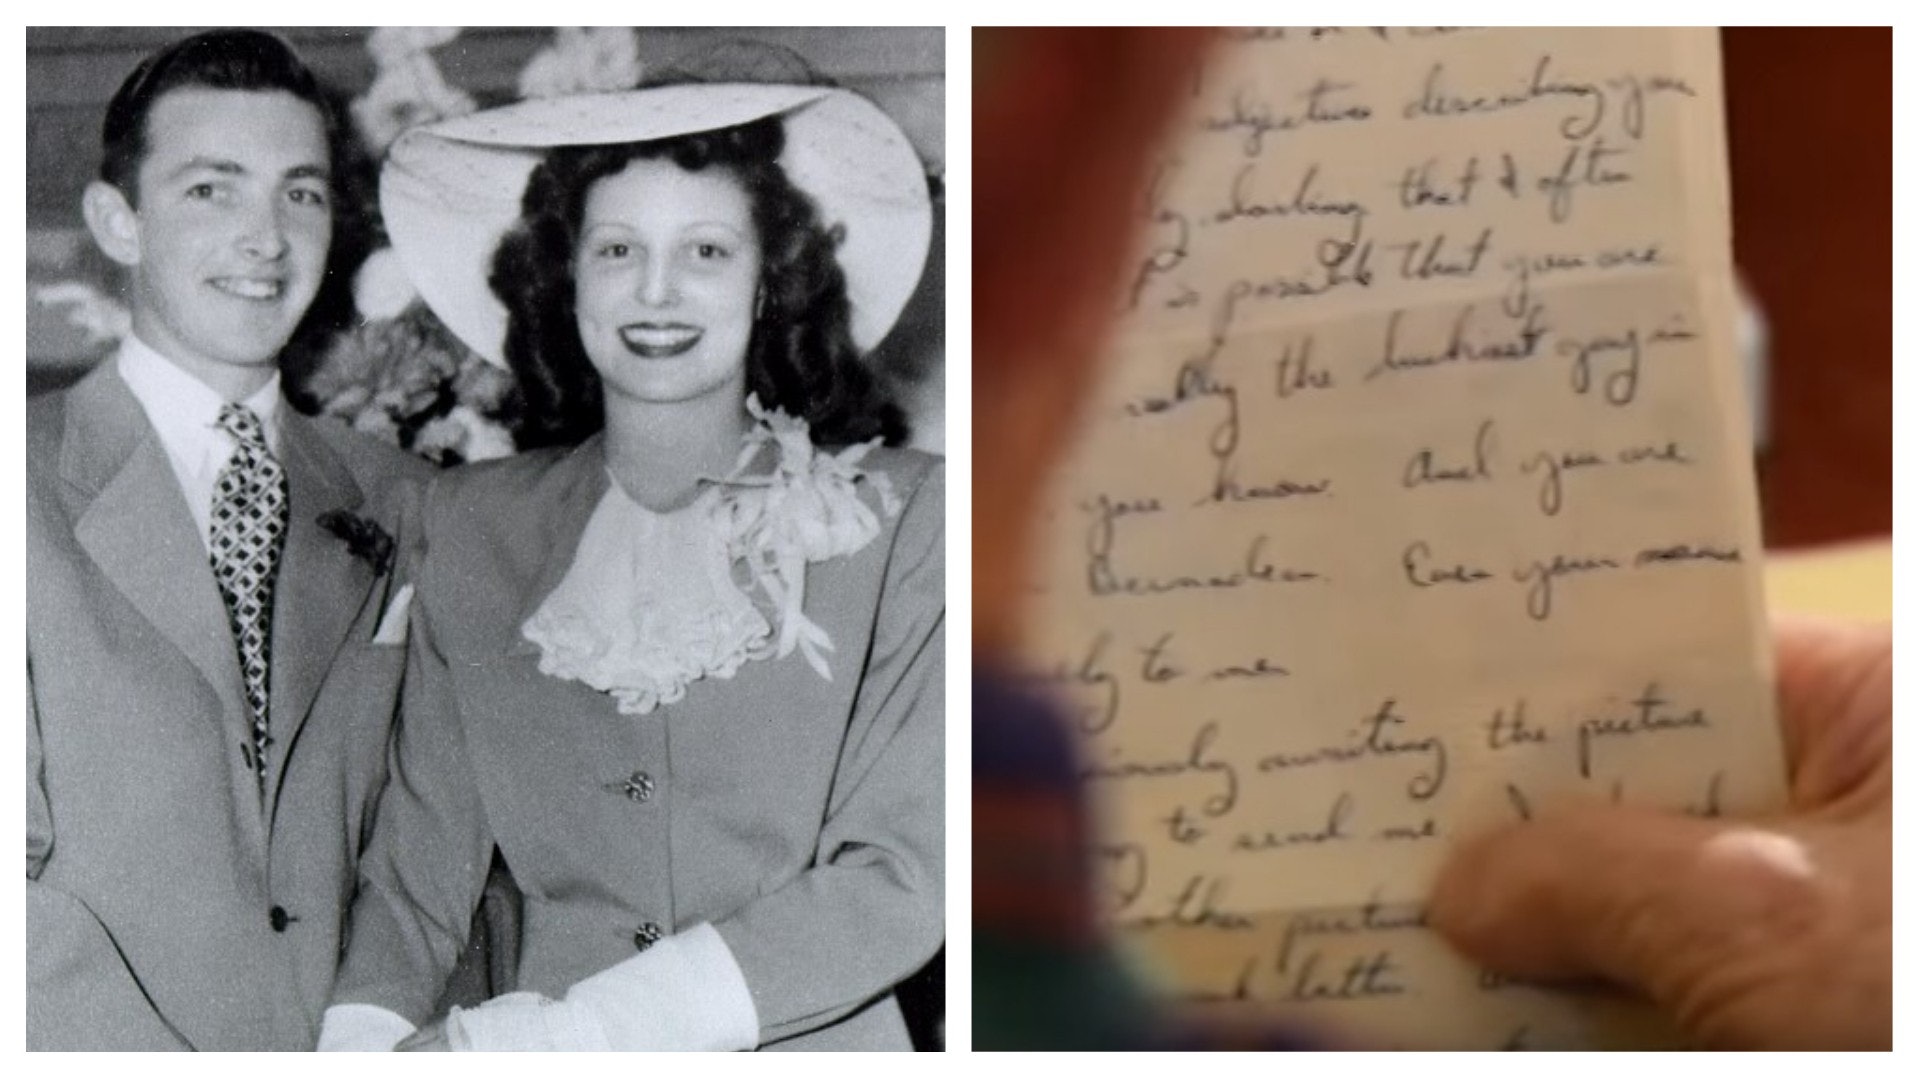 adjectives describing you
darling that I often
is possible that you are
really the luckiest guy in
you know. And you are
Bernadean. Even your name
to me
awaiting the picture
to send me. I
other picture
letter.